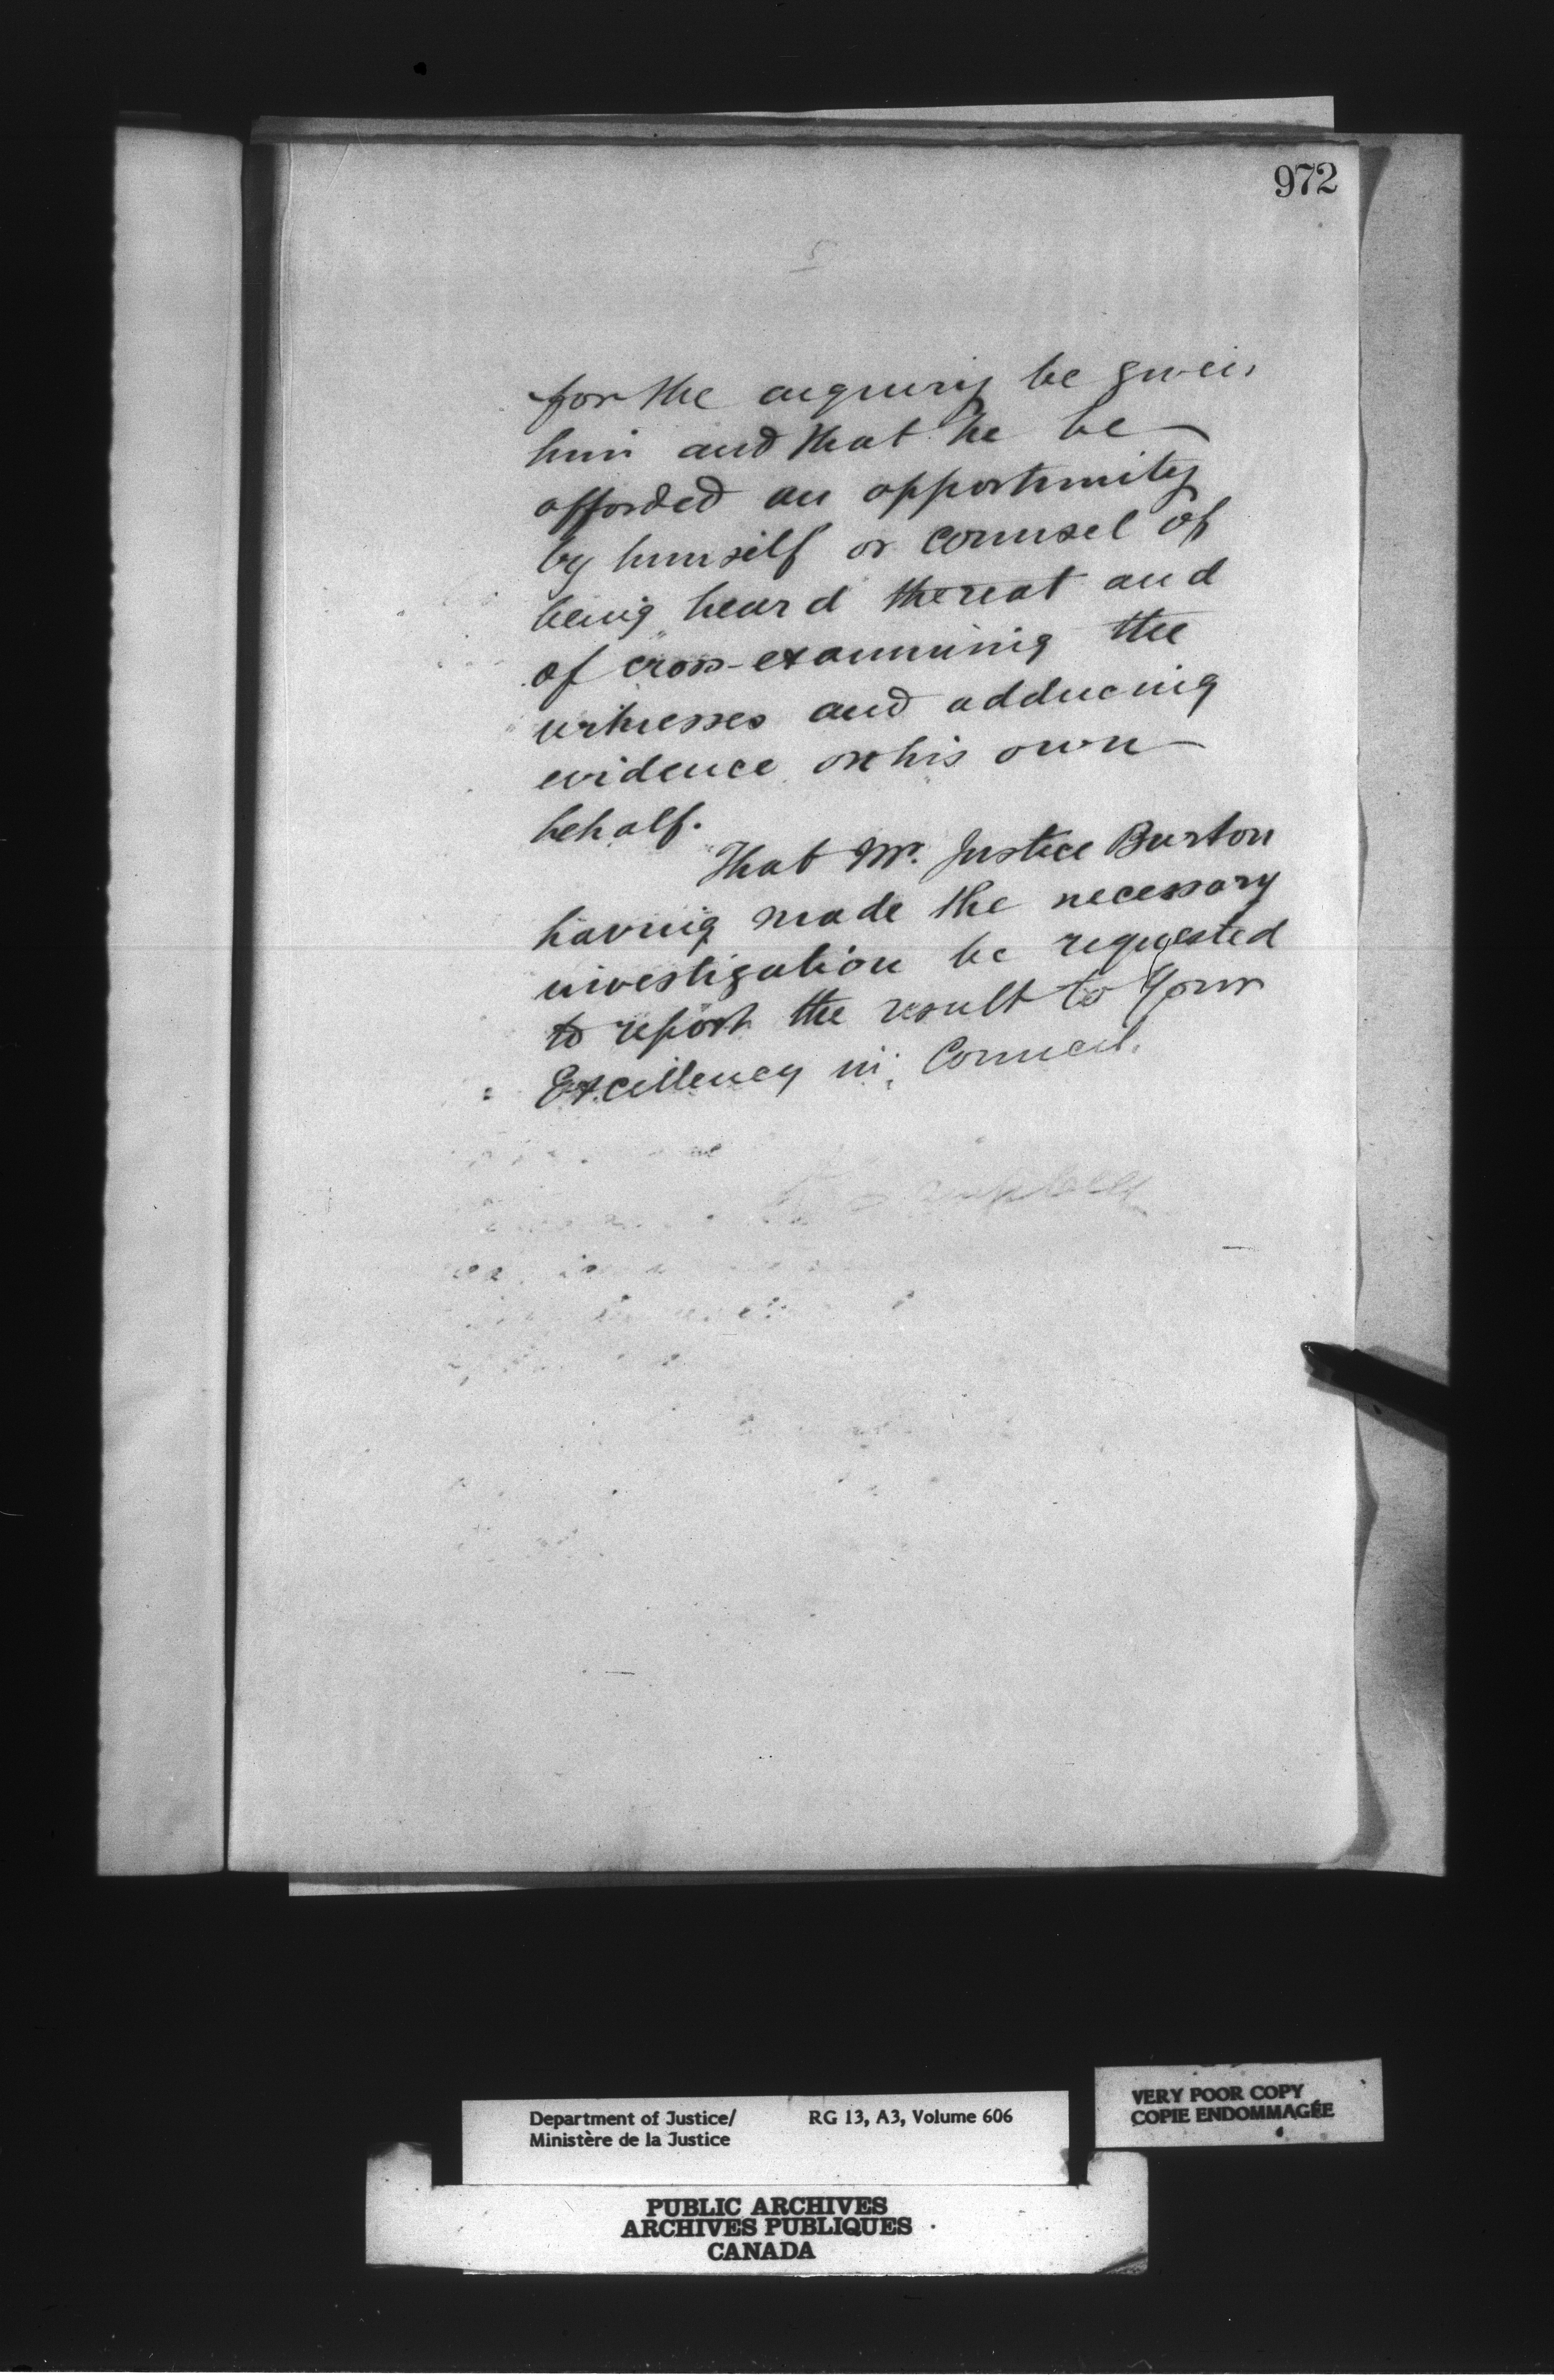 972
5
for the enquiry be given
him and that he be
afforded an opportunity
by himself or counsel of
being heard thereat and
of cross-examining the
witnesses and adducing
evidence on his own
behalf.
That Mr. Justice Burton
having made the necessary
investigation be requested
to report the result to Your
Excellency in Council.
Campbell
Department of Justice/ RG 13, A3, Volume 606
Ministère de la Justice
VERY POOR COPY
COPIE ENDOMMAGÉE
PUBLIC ARCHIVES
ARCHIVES PUBLIQUES
CANADA